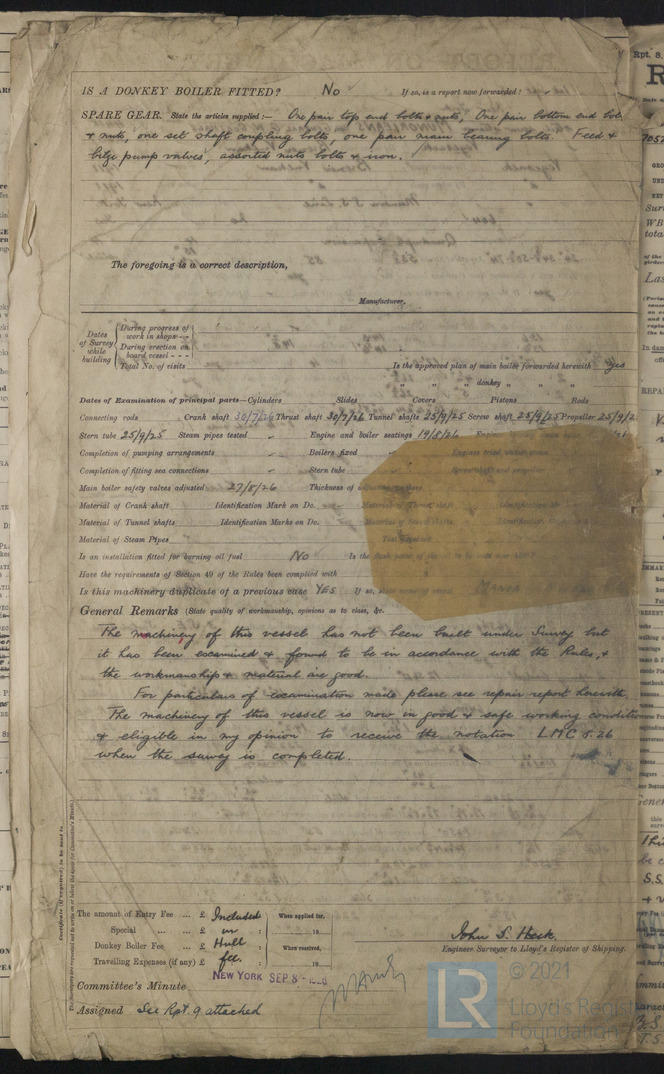 IS A DONKEY BOILER FITTED? No If so, is a report now forwarded?
SPARE GEAR. State the articles supplied:— One pair top end bolts & nuts, One pair bottom end bol
& nuts, one set shaft coupling bolts, one pair main bearing bolts. Feed &
bilge pump valves, assorted nuts bolts & iron.
The foregoing is a correct description,
Manufacturer.
Dates of Survey while building
During progress of work in shops - -
During erection on board vessel - - -
Total No. of visits
Is the approved plan of main boiler forwarded herewith Yes
" " " donkey " " "
Dates of Examination of principal parts—Cylinders Slides Covers Pistons Rods
Connecting rods Crank shaft 30/7/26 Thrust shaft 30/7/26 Tunnel shafts 25/9/25 Screw shaft 25/9/25 Propeller 25/9/2
Stern tube 25/9/25 Steam pipes tested Engine and boiler seatings 19/8/26
Completion of pumping arrangements Boilers fixed Engines tried under steam
Completion of fitting sea connections Stern tube Screw shaft and propeller
Main boiler safety valves adjusted 27/8/26 Thickness of adjusting washers
Material of Crank shaft Identification Mark on Do. Material of Thrust shaft
Material of Tunnel shafts Identification Marks on Do.
Material of Steam Pipes
Is an installation fitted for burning oil fuel No Is the flash point of the oil to be used over 150°F.
Have the requirements of Section 49 of the Rules been complied with
Is this machinery duplicate of a previous case YES If so,
General Remarks (State quality of workmanship, opinions as to class, &c.
The machinery of this vessel has not been built under Survey but
it has been examined & found to be in accordance with the Rules, &
the workmanship & material are good.
For particulars of examination made please see repair report herewith.
The machinery of this vessel is now in good & safe working condition
& eligible in my opinion to receive the notation LMC 8.26
when the survey is completed.
The amount of Entry Fee ... £ Included When applied for,
Special ... ... £ in : 19
Donkey Boiler Fee ... £ Hull : When received,
Travelling Expenses (if any) £ fee. : 19
John S. Heck.
Engineer Surveyor to Lloyd's Register of Shipping.
Committee's Minute NEW YORK SEP 8 - 1926
Assigned See Rpt. 9 attached
© 2021
Lloyd's Regist
Foundation